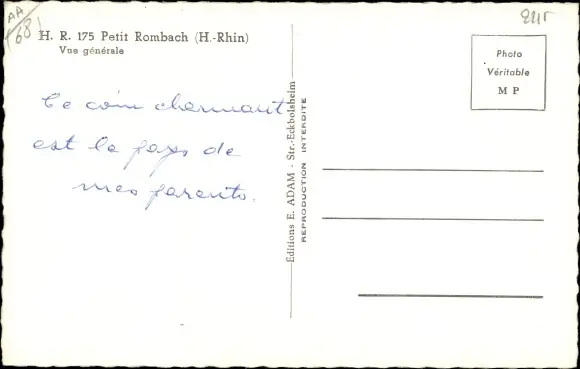 AA
68
H. R. 175 Petit Rombach (H.-Rhin)
Vue générale
Ce coin charmant
est le pays de
mes parents.
Editions E. ADAM - Str.-Eckbolsheim
REPRODUCTION INTERDITE
Photo
Véritable
M P